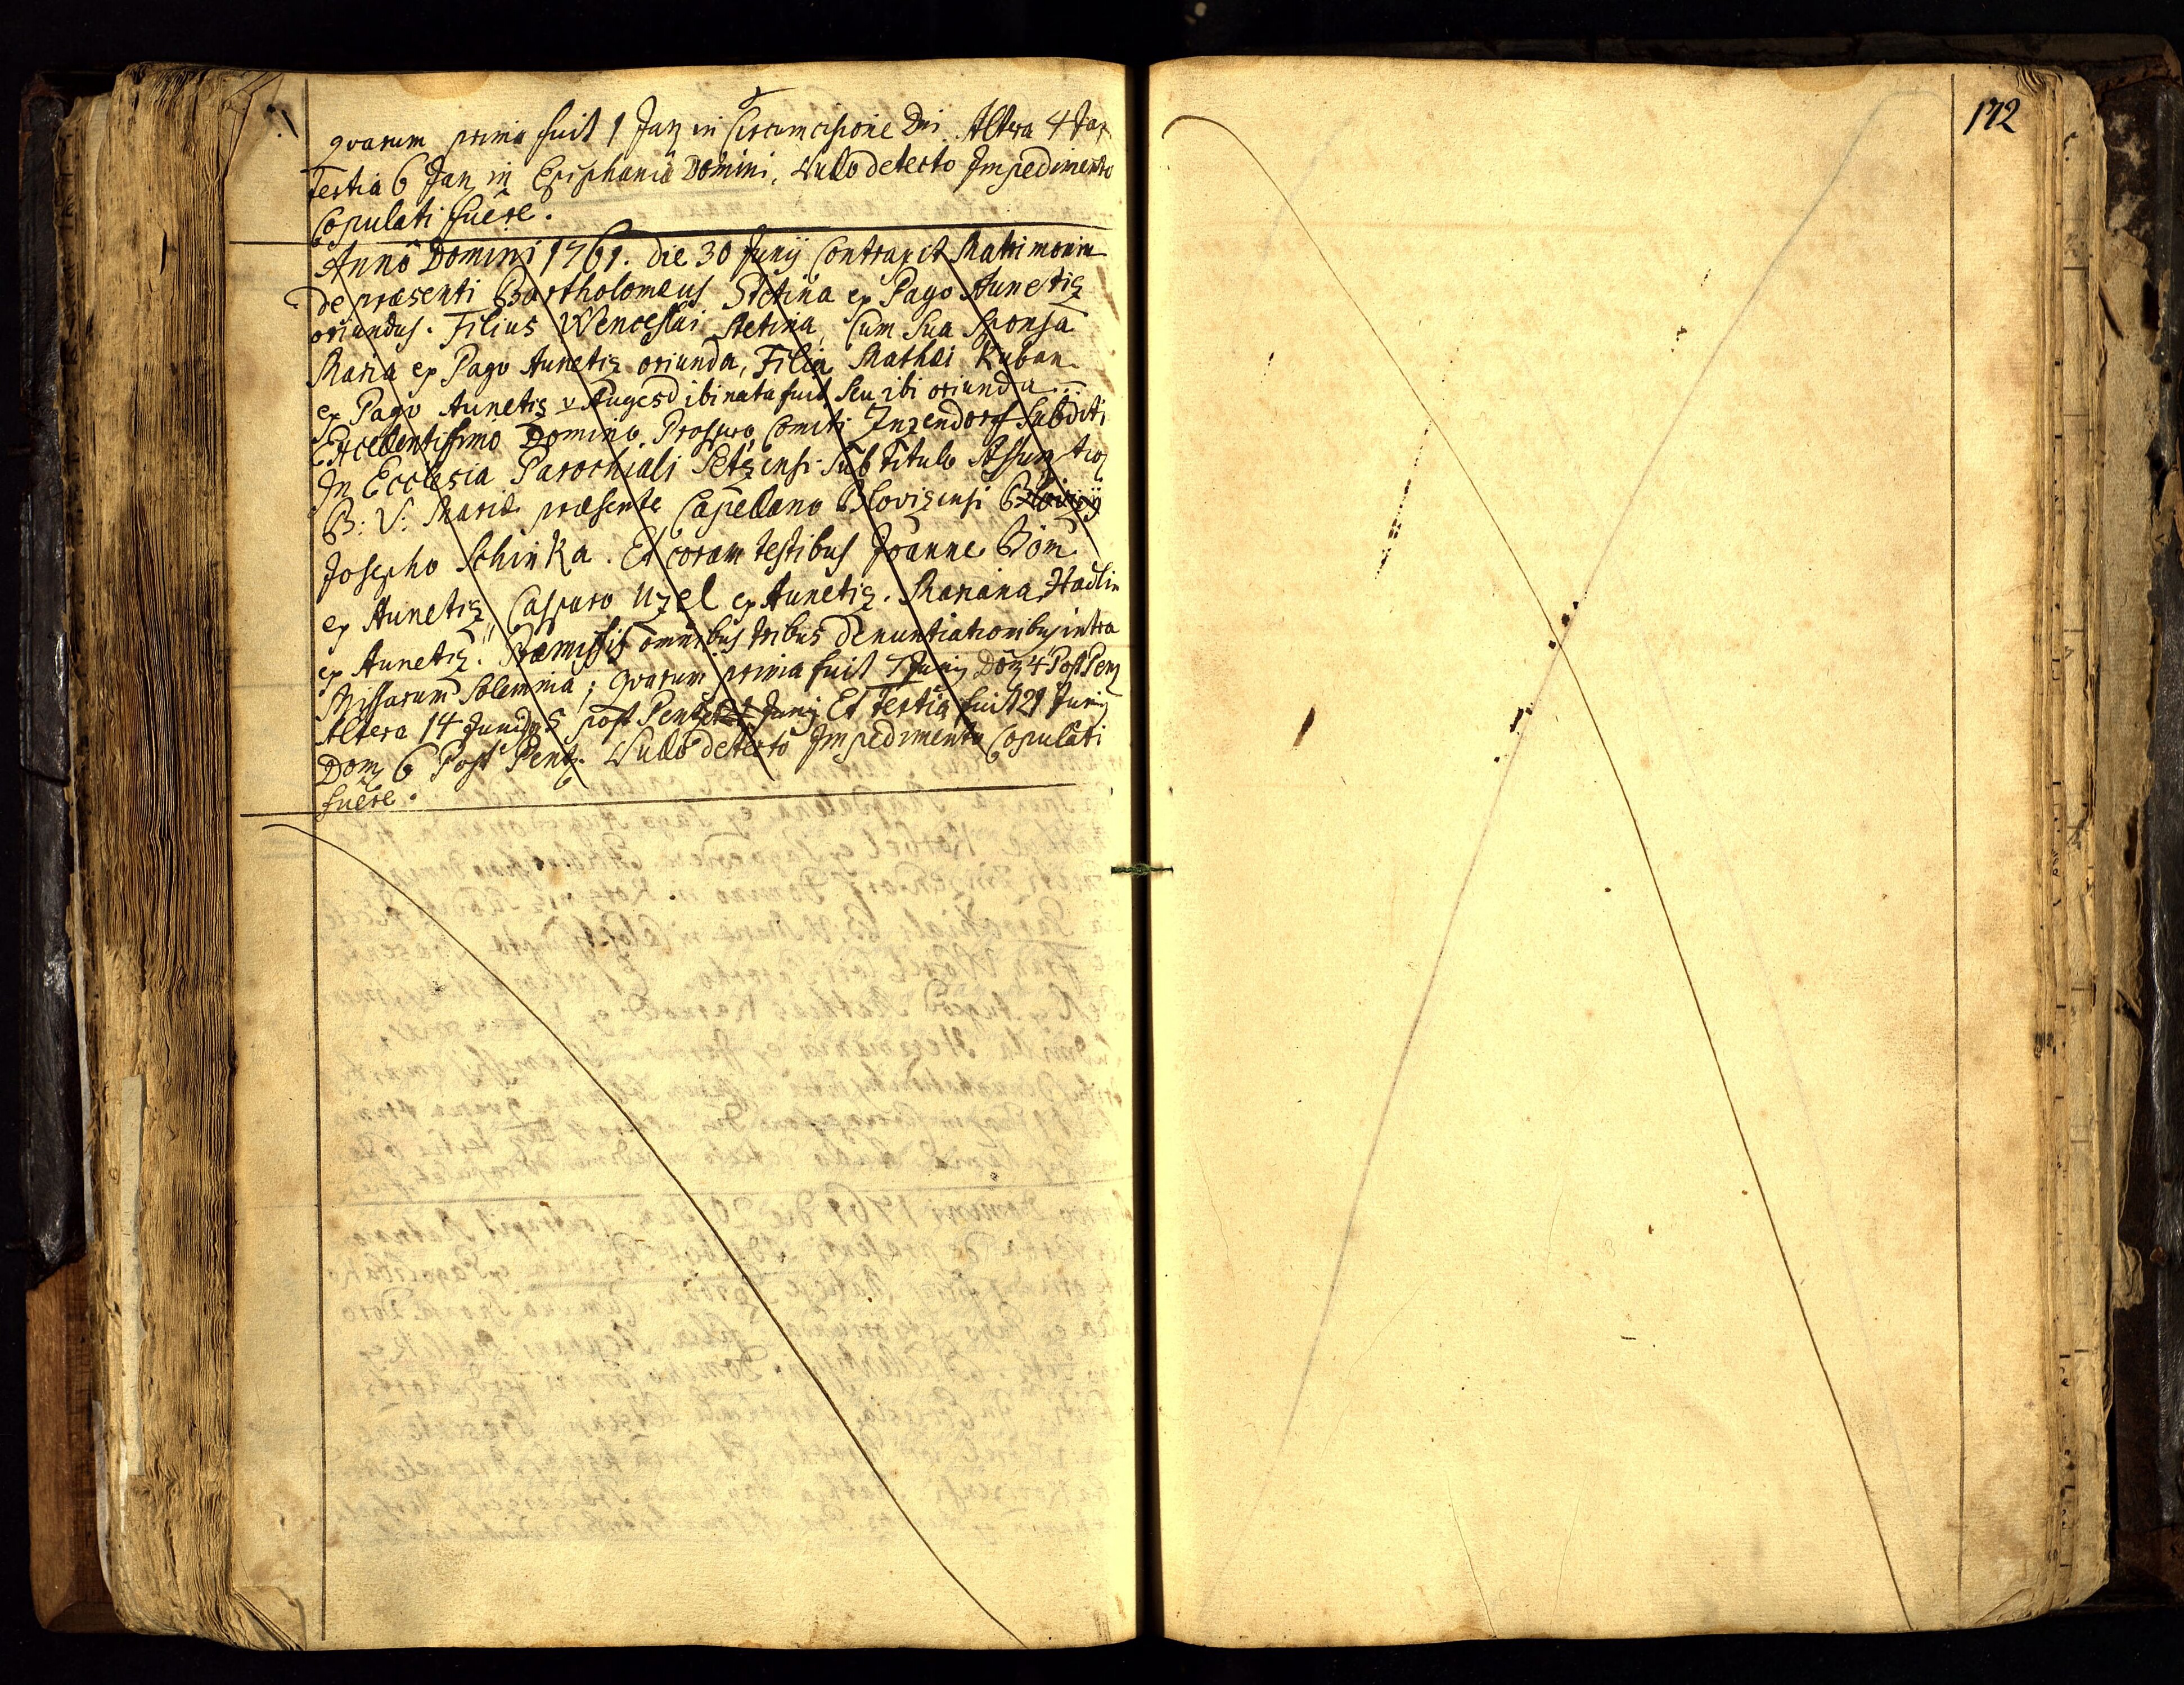 qvarum prima fuit 1 Janʒ in Circumcisione Dni Altera 4 Jan
tertia 6 Janʒ in Epiphania Domini, Nullo detecto Impedimento
Copulati fuere.
Anno Domini 1761. die 30 Junij Contraxit Matrimoniu
de præsenti Bartholomæus Stetina ex Pago Aunetiz
oriundus. Filius Wenceslai Stetina, Cum Sua Sponsa
Maria ex Pago Aunetiz oriunda, Filia Mathæi Kuban
ex Pago Aunetiz v Augezd ibi nata fuit, seu ibi oriunda
Excellentissimo Domino Prospero Comiti Inzendorf Subditi
In Ecclesia Parochiali Setzensi Sub titulo
B: V: Mariæ præsente Capellano Blovizensi
Josepho Schinka. Et coram testibus Joanne Böm
ex Aunetiz, Casparo Uzel ex Aunetiz. Mariana Hadlin
ex Aunetiz. Præmissis omnibus tribus denuntiationibus intra
Missarum Solemnia; qvarum prima fuit 7 Junij Domʒ 4 Post Penʒ
Altera 14 Junij 5 post Penʒ Junij Et tertia fuit 21 Junij
Domʒ 6 Post Penʒ. Nullo detecto Impedimento Copulati
fuere.
172